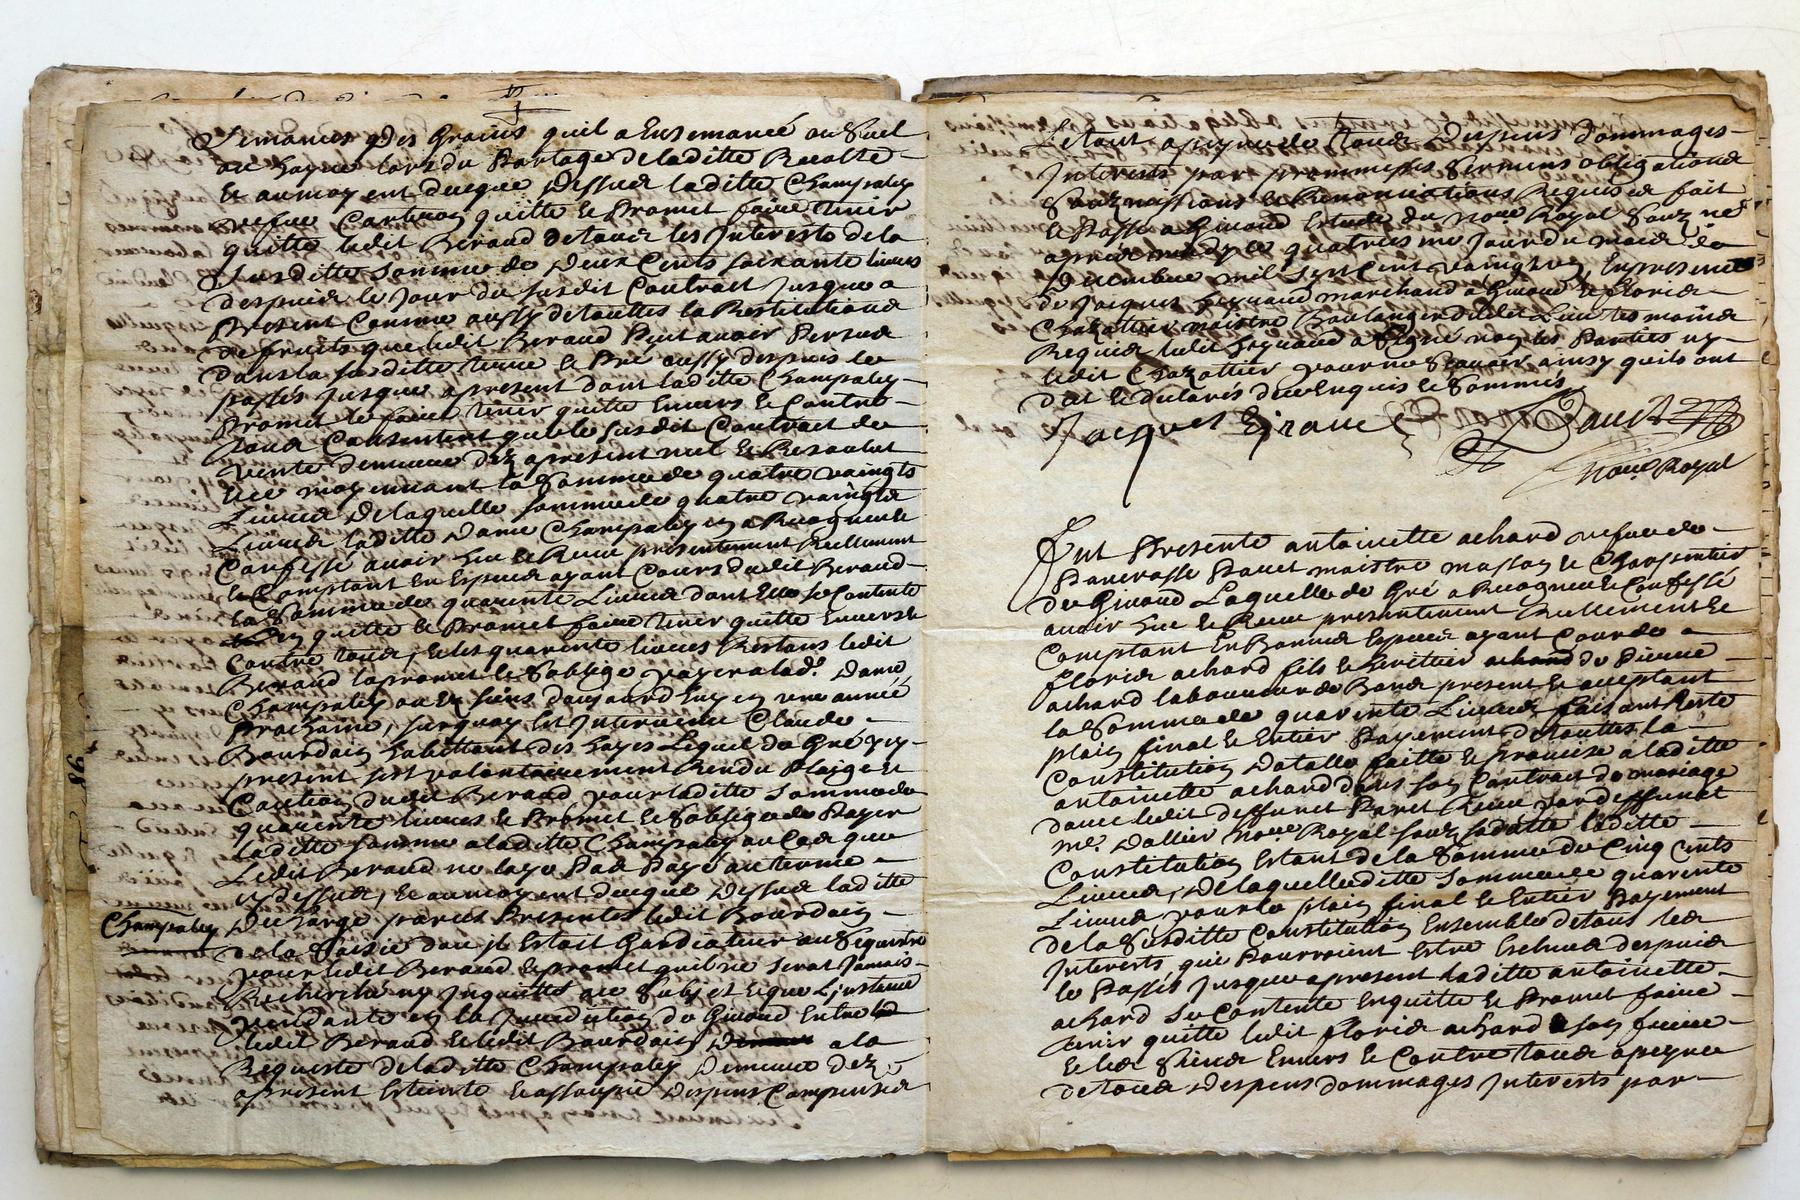 Semances & des Grains quil a Ensemancé au Suel
ou hayne lors du Partage de laditte Recolte
Et aumoyent ducque dessus laditte Champaley
vefue Carbenay quitte et Promet faire tenir
quitte ledit Beraud de tous les Interests de la
Susditte Somme de deux Cents soixante livres
despuis le Jour du susdit Contrait Jusque a
Present Comme aussy de touttes la Restitutions
de fruits que ledit Beraud Puit auoir Perçue
dans la susditte terre et Pré aussy despuis le
passés Jusque a present dont laditte Champaley
Promet le faire tenir quitte Enuers et Contre
tous Consentent que le susdit Contrait de
vente demeure dez apresent nul et Resoulut
Et ce moyennant la Somme de quatre vaingts
Liures de laquelle somme de quatre vaingts
Liures laditte dame Champaley en a Recogneu et
Confessé auoir heu et Receu presentement Reellement
et Comptant En Especes ayant Cours dudit Beraud
la Somme de quarente Liures dont Elle se Contente
Len quitte et Promet faire tenir quitte Enuers et
Contre tous, Et les quarente liures Restans ledit
Beraud la promet et soblige payer a lad.e dame
Champaley ou Es siens daujourdhuy en vne année
Prochaine, surquoy Est Interuenu Claude
Bourdain habittant des hayes Lequel de Gré icy
present sest volontairement Rendu Plaige et
Caution dudit Beraud pour laditte Somme de
quarente liures et Promet et soblige de Payer
laditte somme a laditte Champaley au Cas que
Ledit Beraud ne laye Pas Payé au terme
cy dessus, Et aumoyent ducque dessus laditte
Champaley
decharge par ces Presentes ledit Bourdain
de la Saisie dont Il Estoit Gardiateur ou Sequestre
pour ledit Beraud et promet quil ne serat Jamais
Recherché ny Inquietté a ce Subjet et que Linstance
pendante en la Jurediction de Giraud Entre
ledit Beraud et ledit Bourdain a la
Requeste de laditte Champaley demeure dez
apresent Esteinte et assoupie despens Compensés
Le tout a peyne de tous despens dommages
Interests par prommesses sermens obligations
Soubzmissions et Renonciations Requises fait
et Passé a Giraud Estude du No.re Royal Soubz.né
apres midy ce quatriesme Jour du mois de
Decembre mil sept cent vaingt En presence
de Jacques marchand a Giraud et floris
Chazottier maistre Boulanger dudit Lieu tesmoins
Requis ledit a Signé non les Parties ny
ledit Chazottier pour ne Scauoir ainsy quils ont
dit et declarés de ce Enquis et Sommés
Jacques
No.re Royal
Fut Presente antoinette achard vefue de
Pancrasse Pauet maistre masson et Charpentier
de Giraud Laquelle de Gré a Recogneu et Confessé
auoir heu et Receu presentement Reellement et
Comptant En Bonnes Especes ayant Cours de
floris achard fils et heritier de Pierre
achard laboureur de present et acceptant
la Somme de quarente Liures faisant Reste
plain final et Entier Payement de touttes la
Constitution Datalle faitte et promise a laditte
antoinette achard dans son Contrait de mariage
dauec ledit deffunct Pauet Receu par deffunct
me. Dallier No.re Royal soubz sa datte laditte
Constitution Estant de la Somme de Cinq Cents
Liures, de laquelle ditte Somme de quarente
Liures pour le plain final et Entier Payement
de la Susditte Constitution Ensemble de tous les
Interests que Pourroient Estre Escheus despuis
le Passés Jusque a present laditte antoinette
achard Se Contente En quitte et Promet faire
tenir quitte ledit floris achard son frere
Et les Siens Enuers et Contre tous a peyne
de tous despens dommages Interests par